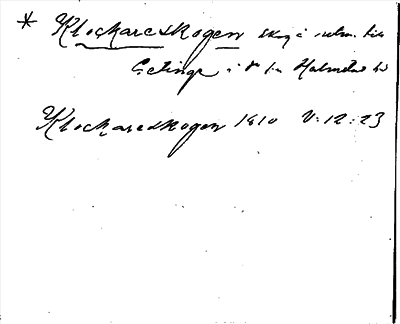 * Klockareskogen skog i utm. till
Getinge i s. fr. Halmstad hd
Klockareskogen 1810 V:12:23